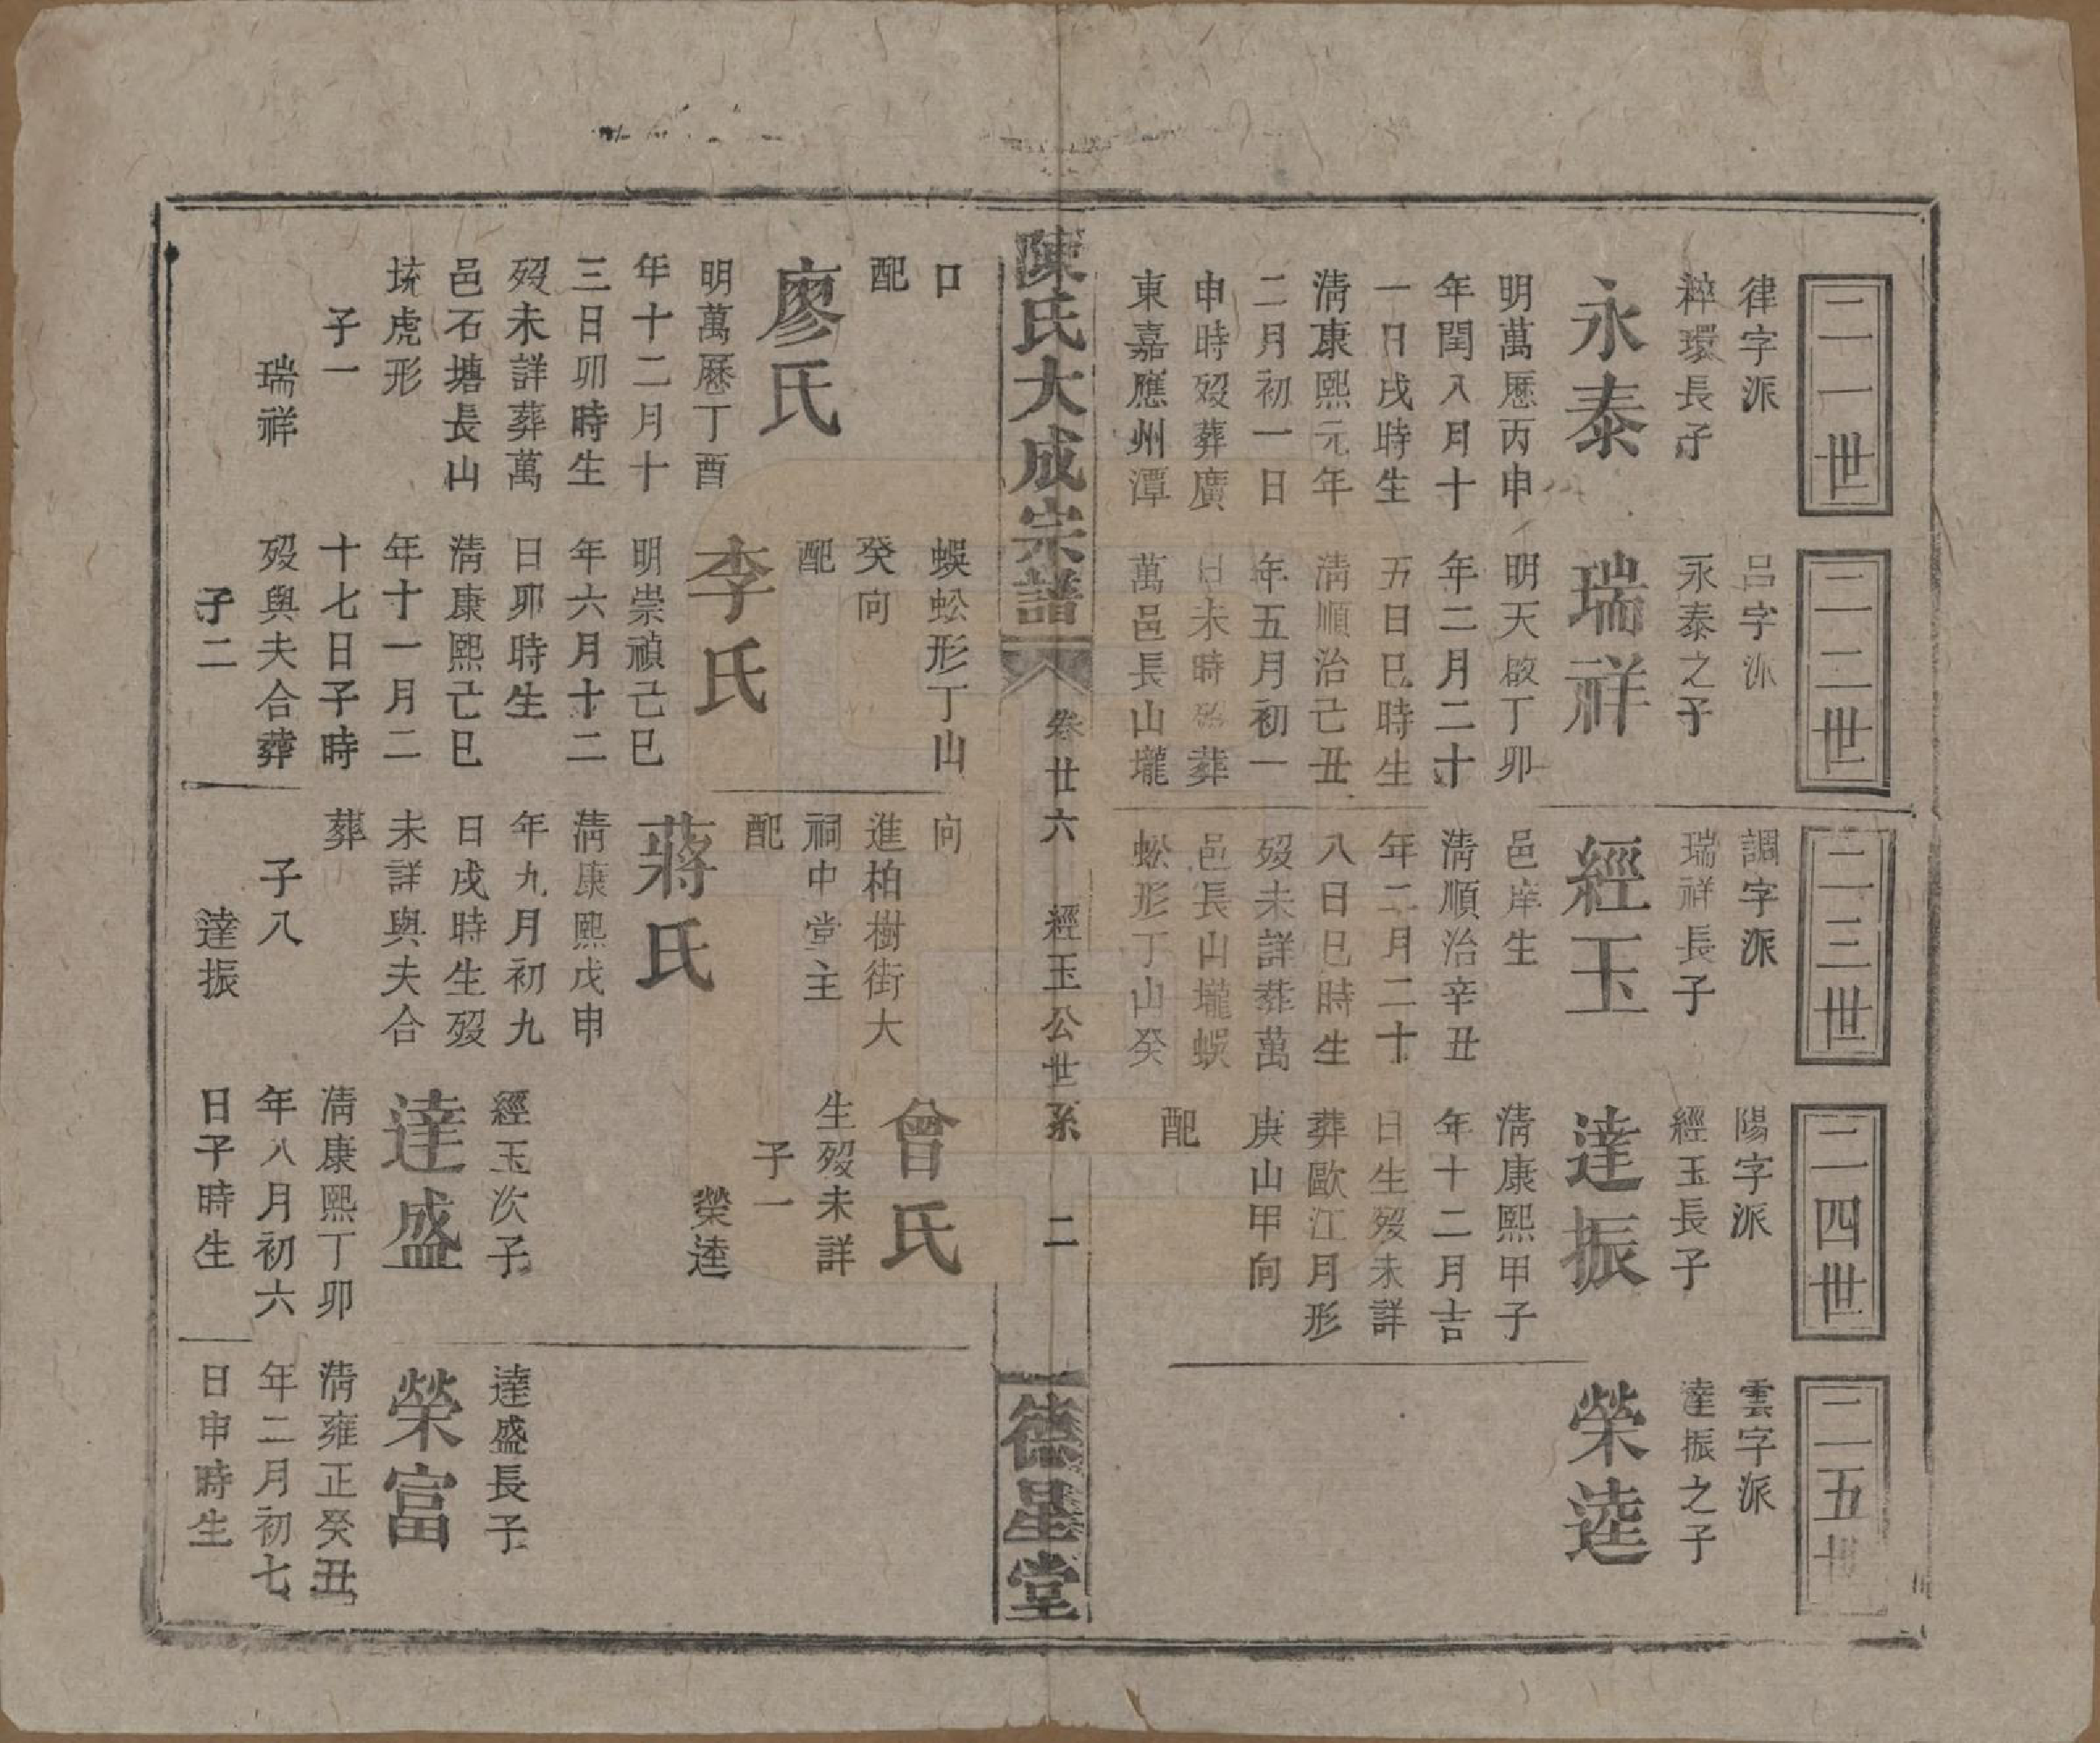 二一世
律字派
粹環長子
永泰
明萬厯丙申
年閏八月十
一日戌時生
淸康熙元年
二月初一日
申時歿葬廣
東嘉應州潭
口
配
廖氏
明萬厯丁酉
年十二月十
三日卯時生
歿未詳葬萬
邑石塘長山
垅虎形
子一
瑞祥
二二世
呂字派
永泰之子
瑞祥
明天啟丁卯
年二月二十
五日巳時生
淸順治己丑
年五月初一
日未時歿葬
萬邑長山壠
蜈蚣形丁山
癸向
配
李氏
明崇禎己巳
年六月十二
日卯時生
淸康熙己巳
年十一月二
十七日子時
歿與夫合葬
子二
二三世
調字派
瑞祥長子
經玉
邑庠生
淸順治辛丑
年二月二十
八日巳時生
歿未詳葬萬
邑長山壠蜈
蚣形丁山癸
向
進柏樹街大
祠中堂主
配
蔣氏
淸康熙戊申
年九月初九
日戌時生歿
未詳與夫合
葬
子八
達振
二四世
陽字派
經玉長子
達振
淸康熙甲子
年十二月吉
日生歿未詳
葬歐江月形
庚山甲向
配
曾氏
生歿未詳
子一
榮逵
經玉次子
達盛
淸康熙丁卯
年八月初六
日子時生
二五世
雲字派
達振之子
榮逵
達盛長子
榮富
淸雍正癸丑
年二月初七
日申時生
陳氏大成宗譜
卷廿六 經玉公世系 二
德星堂